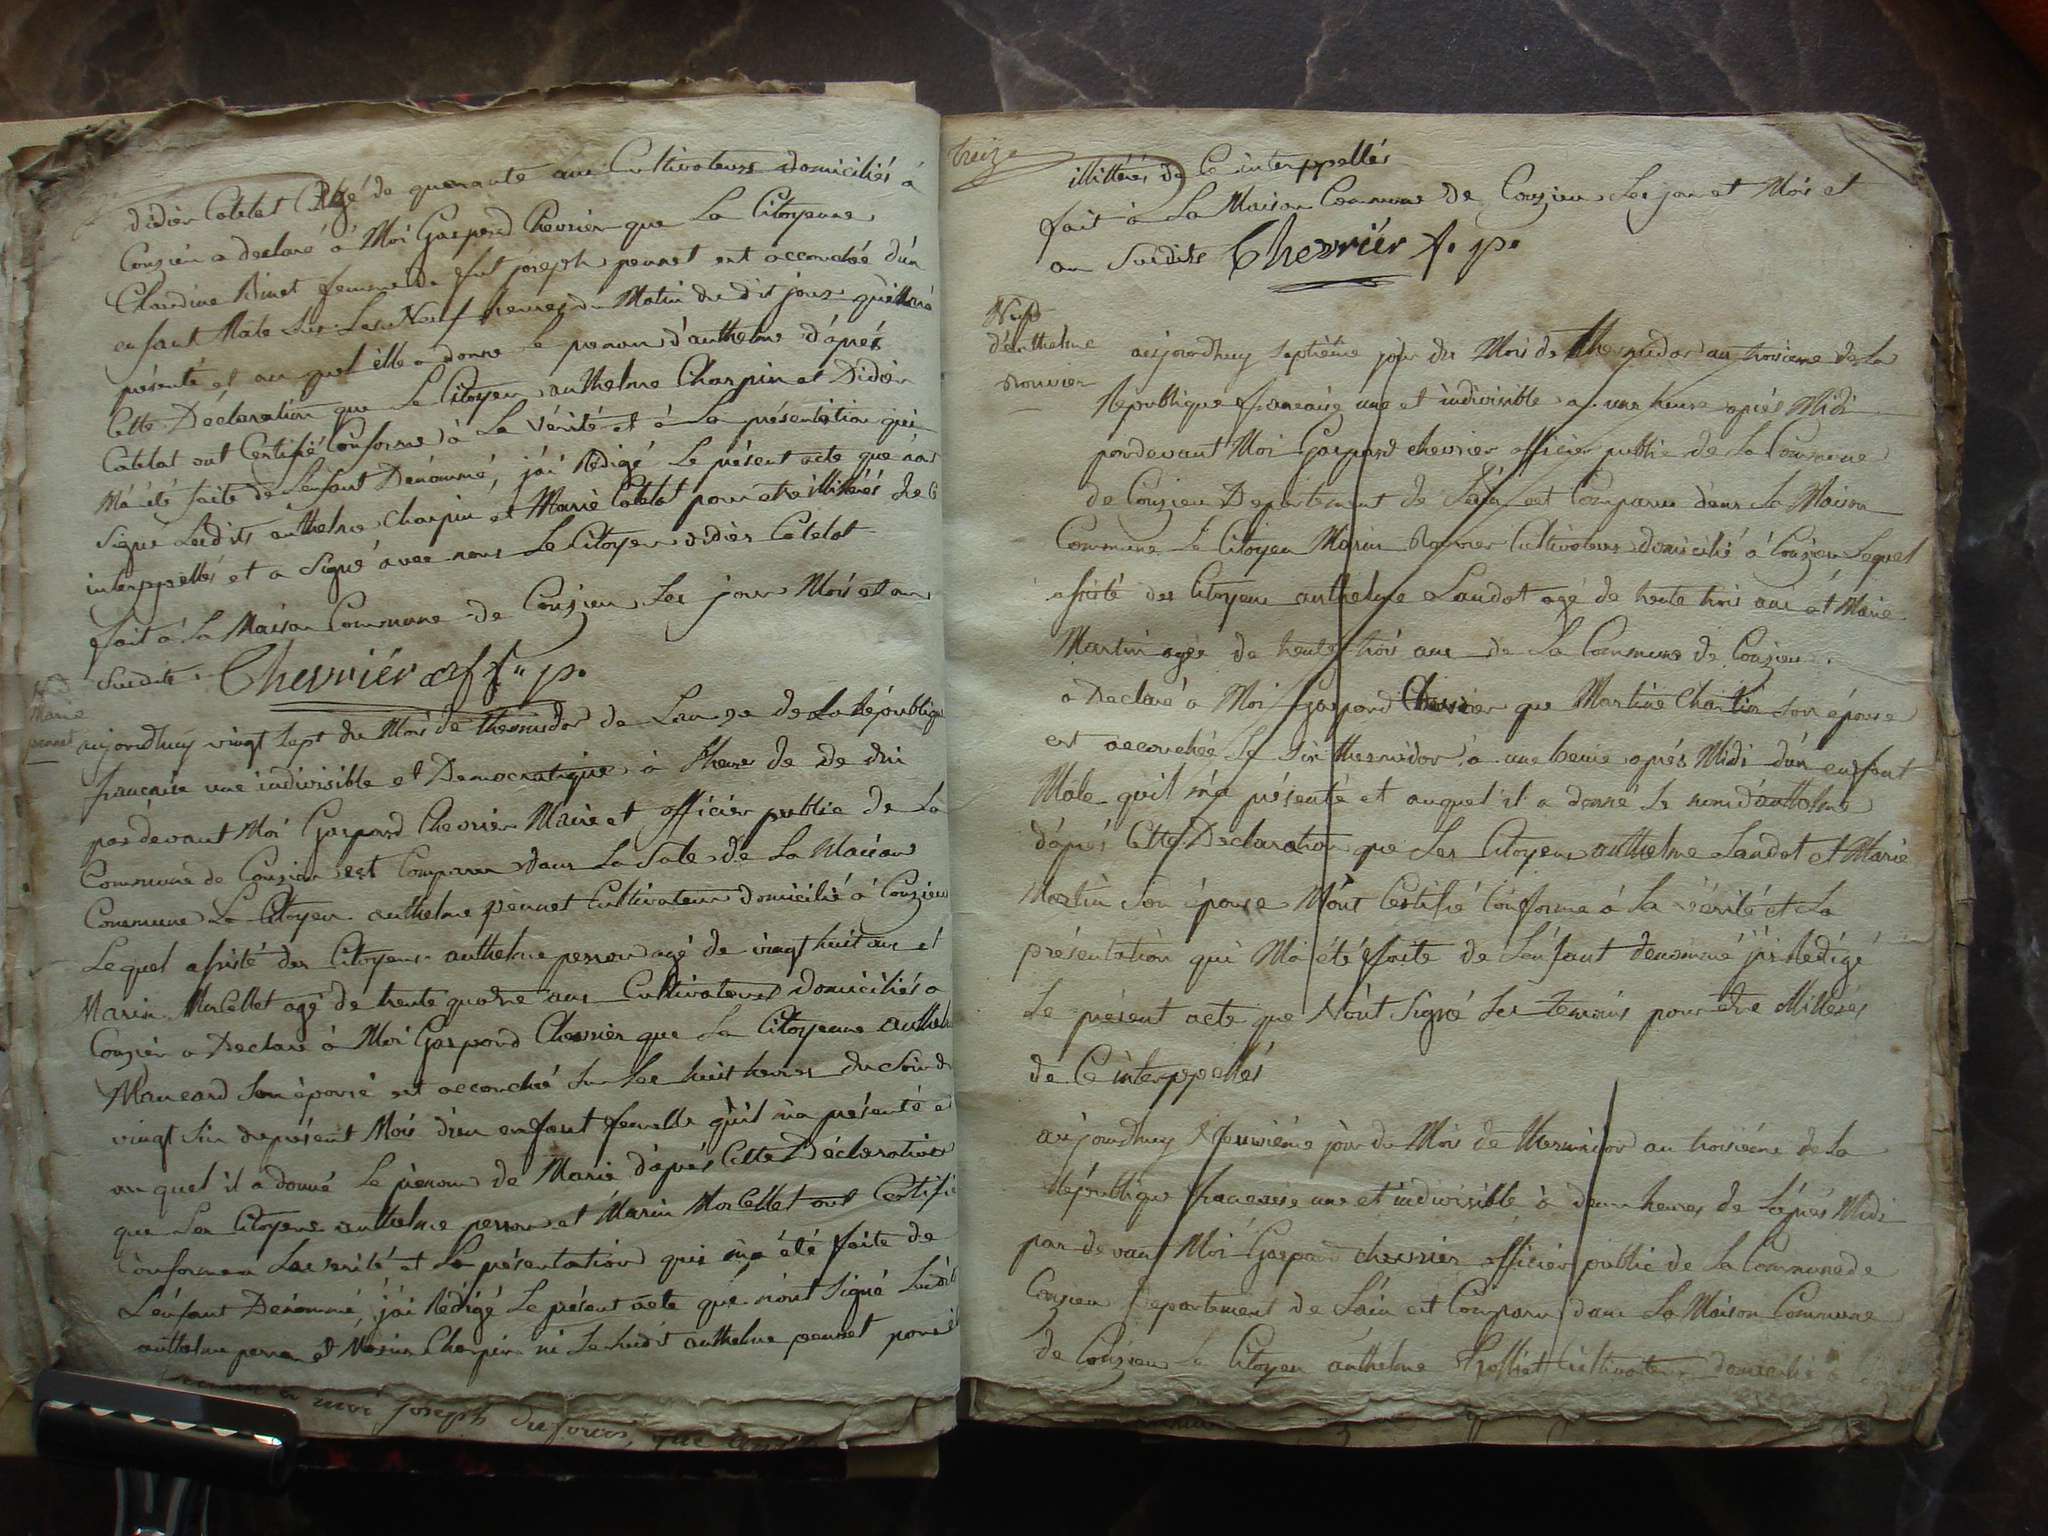 didier Catelat Agé de quarante ans Cultivateurs domiciliés à
Conzieu a declaré à Moi Gaspard Chevrier que La Citoyenne
Claudine Binet femme de fut joseph pennet est accouchée d'un
enfant Male sur Les Neuf heures du Matin du dit jour
présenté et au quel elle a donné le prenom d'anthelme d'aprés
Cette Déclaration que Le Citoyen anthelme Charpin et Didier
Catelat ont Certifié Conforme à La vérité et à La présentation qui
M'a été faite de L'enfant Dénommé, j'ai Rédigé Le présent acte que n'ont
Signé Lesdits anthelme Charpin et Marie Catelat pour etre illitérés de Ce
interppellés et a Signé avec nous Le Citoyen didier Catelat
fait à La Maison Commune de Conzieu Les jour Mois et an
Susdits Chevriér off. p.
Marie
pennet
aujourdhuy vingt sept du Mois de thermidor de Lan 2e de La République
francaise une indivisible et Democratique à Lheure de de dix
pardevant Moi Gaspard Chevrier Maire et officier public de La
Commune de Conzieu est Comparu dans La Sale de La Maison
Commune Le Citoyen anthelme pennet Cultivateur domicilié à Conzieu
Lequel assisté des Citoyens anthelme perron agé de vingt huit ans et
Marin Morcellet agé de trente quatre ans Cultivateurs domiciliés a
Conzieu a Declaré à Moi Gaspard Chevrier que La Citoyenne anthel
Mancard Son épouse est accouché Sur Les huit heures du Soir du
vingt Six du présent Mois d'un enfant femelle qu'il m'a présenté et
au quel il a donné Le prénom de Marie d'aprés Cette Déclaration
que Les Citoyens anthelme perron et Marin Morcellet ont Certifié
Conforme a La vérité et La présentation qui m'a été faite de
L'enfant Dénommé, j'ai Rédigé Le présent acte que n'ont Signé Lesdits
anthelme perron et Marin Charpin ni Le susdit anthelme pennet pour
moi joseph dufour, que
treize
illittérés de Ce interppellés
fait à La Maison Commune de Conzieu Les jour et Mois et
an Susdits Chevriér f. p.
Nayse
d'anthelme
aujourdhuy Septiéme jour du Mois de thermidor an troisieme de La
République francaise une et indivisible a une heure aprés Midi
pardevant Moi Gaspard chevrier officier public de La Commune
de Conzieu Departement de L'ain est Comparu dans La Maison
Commune Le Citoyen Marin Cultivateur domicilié à Conzieu Lequel
assisté des Citoyens anthelme Landot agé de trente trois ans et Marie
Martin agée de trente trois ans de La Commune de Conzieu
a Declaré à Moi Gaspard Chevrier que Martine Charlin Son épouse
est accouchée Le Six thermidor à une heure aprés Midi d'un enfant
Male qu'il m'a présenté et auquel il a donné Le nom d'anthelme
d'aprés Cette Declaration que Les Citoyens anthelme Landot et Marie
Martin Son épouse M'ont Certifié Conforme à La vérité et La
présentation qui M'a été faite de L'enfant denommé j'ai Rédigé
Le présent acte que N'ont Signé Les temoins pour etre illitérés
de Ce interppellés
aujourdhuy Neuviéme jour du Mois de thermidor an troisiéme de La
République francaise une et indivisible à deux heures de L'aprés Midi
par devant Moi Gaspard chevrier officier public de La Commune de
Conzieu Departement de L'ain est Comparu dans La Maison Commune
de Conzieu Le Citoyen anthelme Cultivateur domicilié à